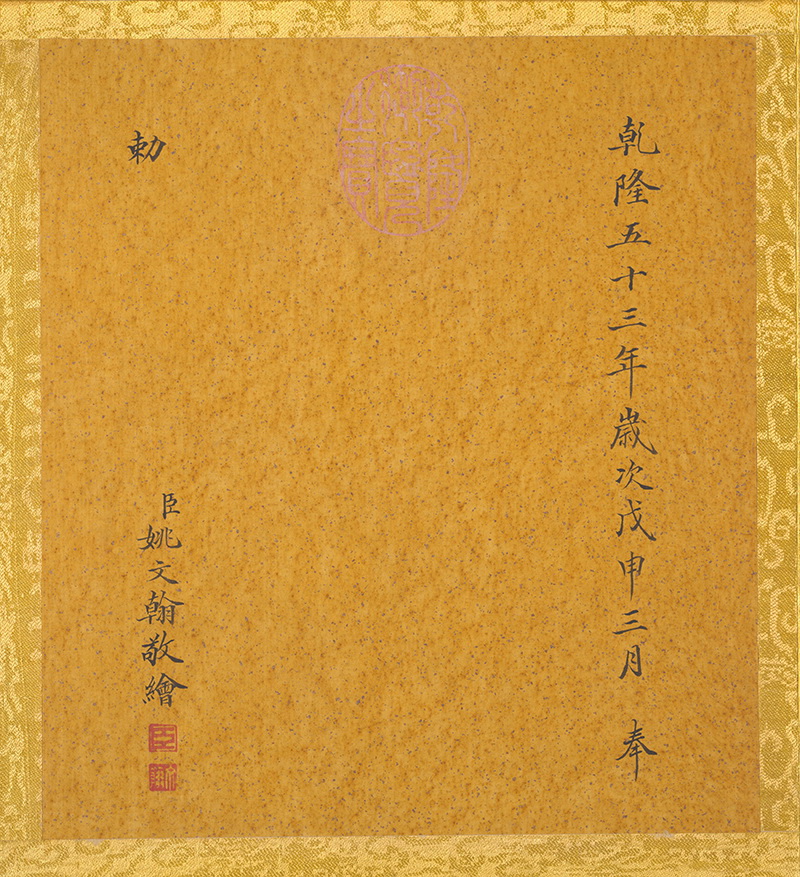 乾隆五十三年歲次戊申三月 奉
勅
臣姚文翰敬繪
臣
文翰